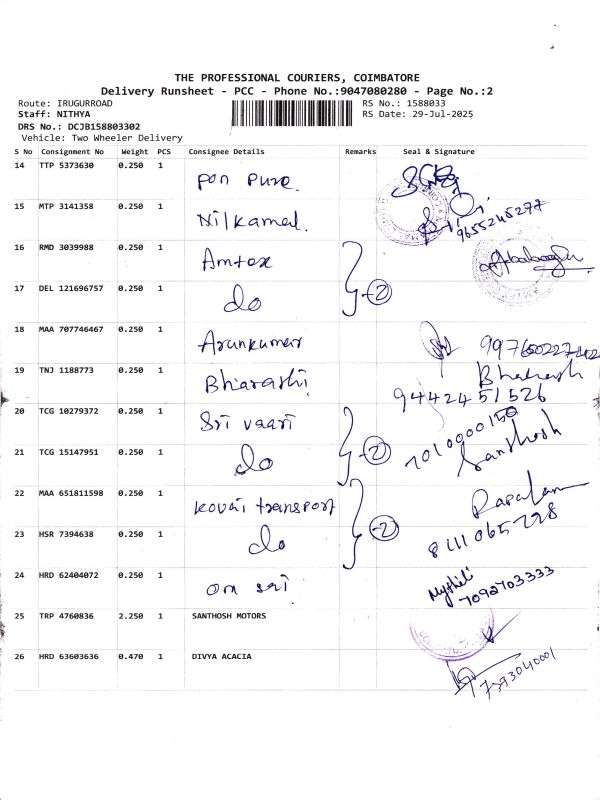 THE PROFESSIONAL COURIERS, COIMBATORE
Delivery Runsheet - PCC - Phone No.:9047080280 - Page No.:2
Route: IRUGURROAD RS No.: 1588033
Staff: NITHYA RS Date: 29-Jul-2025
DRS No.: DCJB158803302
Vehicle: Two Wheeler Delivery
S No Consignment No Weight PCS Consignee Details Remarks Seal & Signature
14 TTP 5373630 0.250 1 pon pure
15 MTP 3141358 0.250 1 Nilkamal. 9655248277
16 RMD 3039988 0.250 1 Amtex
17 DEL 121696757 0.250 1 do -2
18 MAA 707746467 0.250 1 Arunkumar
19 TNJ 1188773 0.250 1 Bharathi Bharath
9442451526
20 TCG 10279372 0.250 1 Sri vaari 7010000150
21 TCG 15147951 0.250 1 do -2 Santhosh
22 MAA 651811598 0.250 1 kovai transport
23 HSR 7394638 0.250 1 do -2 8111065228
24 HRD 62404072 0.250 1 om sri Mythili
7092703333
25 TRP 4760836 2.250 1 SANTHOSH MOTORS
26 HRD 63603636 0.470 1 DIVYA ACACIA 7373040001